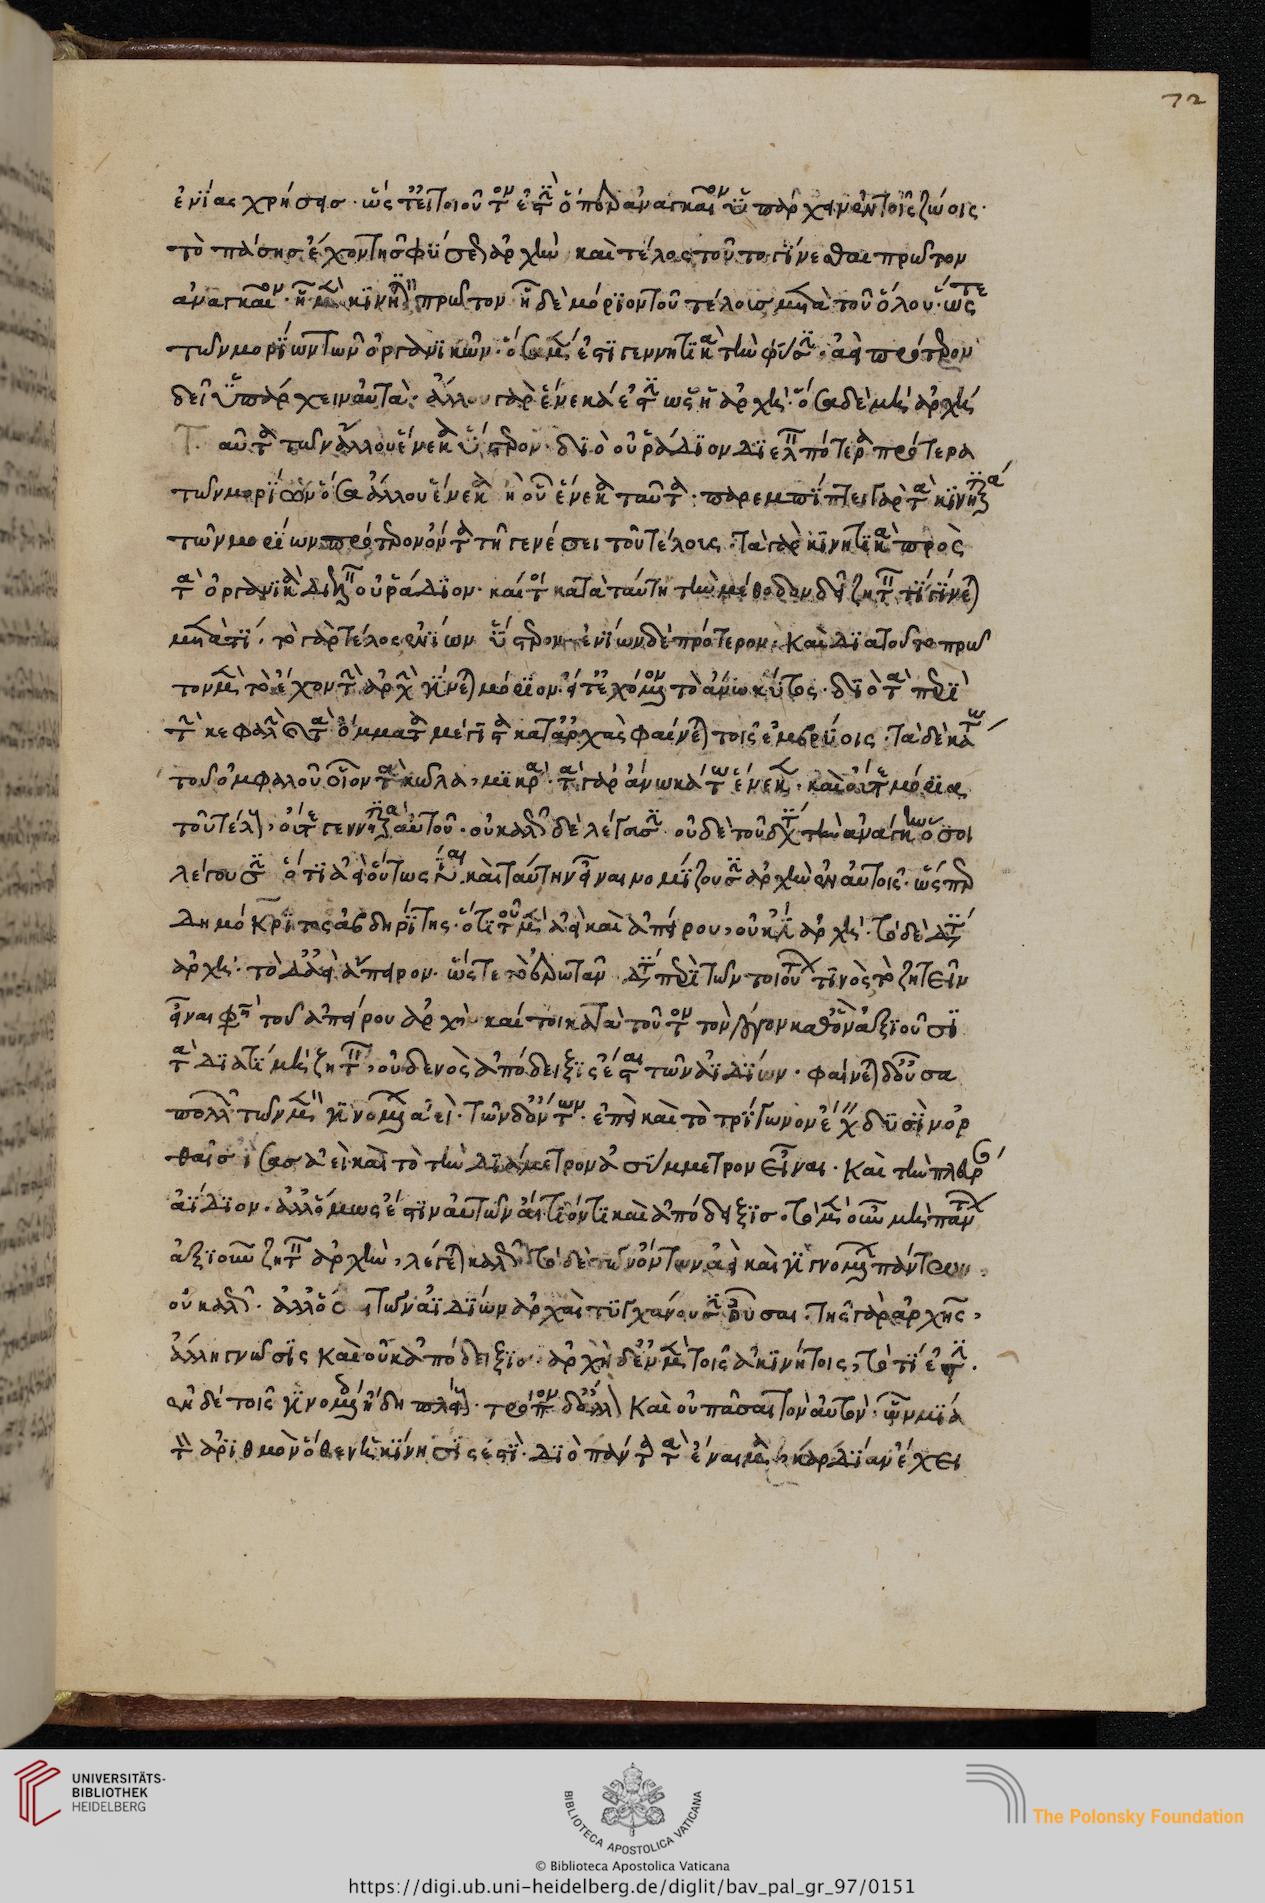 72
ἐνίας χρήσεις. ὥστ' εἴ τι τοιοῦτόν ἐστιν ὅπερ ἀναγκαῖον ὑπάρχειν ἐν τοῖς ζώοις.
τὸ πάσης ἔχον τῆς φύσεως ἀρχὴν καὶ τέλος τοῦτο γίνεσθαι πρῶτον
ἀναγκαῖον. ᾗ μὲν κινητικὸν πρῶτον ᾗ δὲ μόριον τοῦ τέλους μετὰ τοῦ ὅλου. ὥστε
τῶν μορίων τῶν ὀργανικῶν. ὅσα μέν ἐστι γεννητικὰ τὴν φύσιν. ἀεὶ πρότερον
δεῖ ὑπάρχειν αὐτά. ἄλλου γὰρ ἕνεκά ἐστιν ὡς ἡ ἀρχή. ὅσα δὲ μὴ ἀρχὴ
τῶν ἄλλου ἕνεκα ὕστερον. διὸ οὐ ῥάδιον διελεῖν πότερα πρότερα
τῶν μορίων ὅσα ἄλλου ἕνεκα ἢ οὗ ἕνεκα ταῦτα. παρεμπίπτει γὰρ τὰ κινητικὰ
τῶν μορίων πρότερον ὄντα τῇ γενέσει τοῦ τέλους. τὰ γὰρ κινητικὰ πρὸς
τὰ ὀργανικὰ διελεῖν οὐ ῥάδιον. καίτοι κατὰ ταύτην τὴν μέθοδον δεῖ ζητεῖν τί γίνεται
μετὰ τί. τὸ γὰρ τέλος ἐνίων ὕστερον. ἐνίων δὲ πρότερον. καὶ διὰ τοῦτο πρῶ
τον μὲν τὸ ἔχον τὴν ἀρχὴν γίνεται μόριον. εἶτ' ἐχόμενον τὸ ἄνω κύτος. διὸ τὰ περὶ
τὴν κεφαλὴν καὶ τὰ ὄμματα μέγιστα κατ' ἀρχὰς φαίνεται τοῖς ἐμβρύοις. τὰ δὲ κάτω
τοῦ ὀμφαλοῦ οἷον τὰ κῶλα, μικρά. τὰ γὰρ ἄνω κάτω ἕνεκεν. καὶ οὔτε μόρια
τοῦ τέλους, οὔτε γεννητικὰ αὐτοῦ. οὐ καλῶς δὲ λέγουσιν οὐδὲ τοῦ διὰ τί τὴν ἀνάγκην ὅσοι
λέγουσιν ὅτι ἀεὶ οὕτως γίνεται. καὶ ταύτην εἶναι νομίζουσιν ἀρχὴν ἐν αὐτοῖς. ὥσπερ
Δημόκριτος ἀβδηρίτης. ὅτι τοῦ μὲν ἀεὶ καὶ ἀπείρου, οὐκ ἔστιν ἀρχή. τὸ δὲ διὰ τί
ἀρχή. τὸ δ' ἀεὶ ἄπειρον. ὥστε τὸ ἐρωτᾶν διὰ τί περὶ τῶν τοιούτων τινὸς τὸ ζητεῖν
εἶναι φησὶ τοῦ ἀπείρου ἀρχήν. καίτοι κατὰ τοῦτον τὸν λόγον καθ' ὃν ἀξιοῦσι
τὸ διὰ τί μὴ ζητεῖν, οὐδενὸς ἀπόδειξις ἔσται τῶν ἀϊδίων. φαίνεται δ' οὖσα
πολλῶν τῶν μὲν γινομένων ἀεί. τῶν δ' ὄντων. ἐπεὶ καὶ τὸ τρίγωνον ἔχει δυσὶν ὀρ
θαῖς ἴσας ἀεὶ καὶ τὸ τὴν διάμετρον ἀσύμμετρον εἶναι. καὶ τὴν πλευρὰν
ἀΐδιον. ἀλλ' ὅμως ἐστὶν αὐτῶν αἴτιόν τι καὶ ἀπόδειξις. τὸ μὲν οὖν μὴ πάντων
ἀξιοῦν ζητεῖν ἀρχὴν, λέγεται καλῶς. τὸ δὲ τῶν ὄντων ἀεὶ καὶ γιγνομένων πάντων
οὐ καλῶς. ἀλλ' ὅσαι τῶν ἀϊδίων ἀρχαὶ τυγχάνουσιν οὖσαι. τῆς γὰρ ἀρχῆς,
ἄλλη γνῶσις καὶ οὐκ ἀπόδειξις. ἀρχὴ δ' ἐν μὲν τοῖς ἀκινήτοις, τὸ τί ἐστιν.
ἐν δὲ τοῖς γινομένοις ἤδη πλείους. τρόπον δ' ἄλλον καὶ οὐ πᾶσαι τὸν αὐτόν. ὧν μία
τὸν ἀριθμὸν ὅθεν ἡ κίνησίς ἐστι. διὸ πάντα τὰ ἔναιμα καρδίαν ἔχει
UNIVERSITÄTS-
BIBLIOTHEK
HEIDELBERG
BIBLIOTECA APOSTOLICA VATICANA
The Polonsky Foundation
© Biblioteca Apostolica Vaticana
https://digi.ub.uni-heidelberg.de/diglit/bav_pal_gr_97/0151